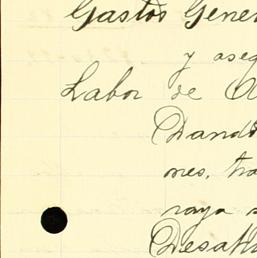 Gastos Gener
y aseg
Labor de O
Dand
nes, tra
raya s
Desah